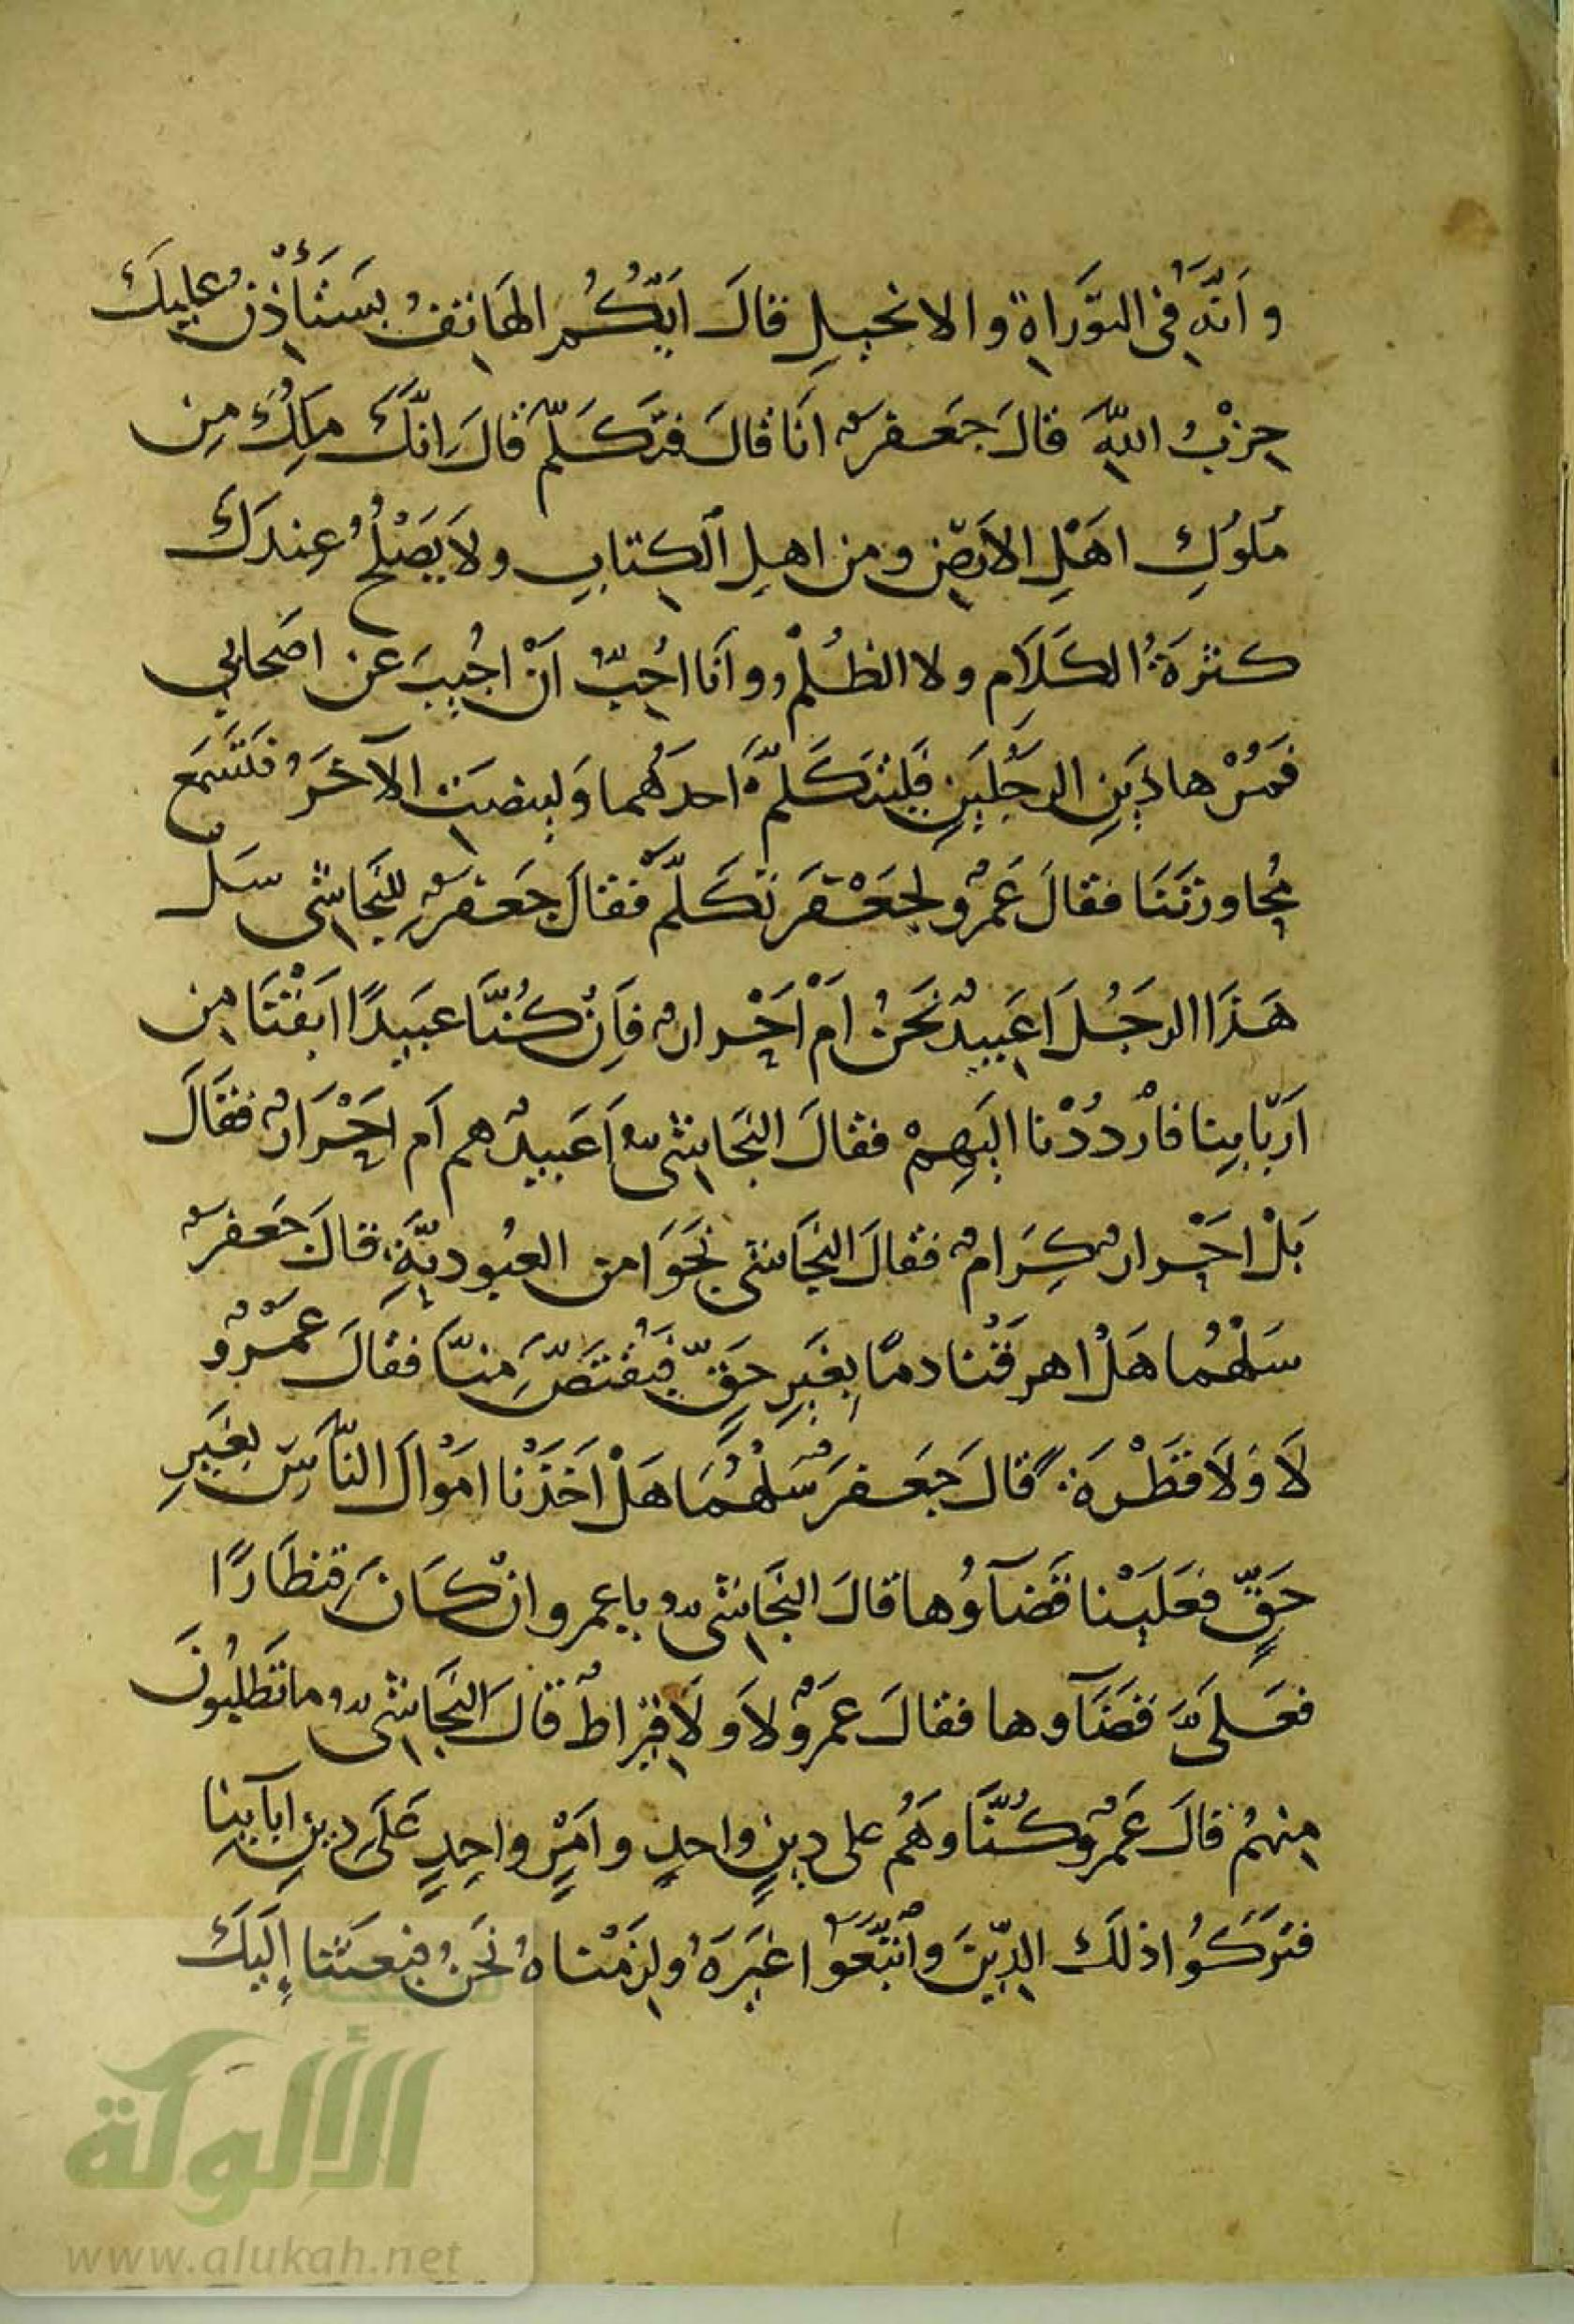 و اَنَّهُ فى التَّوَراةِ والانجيلِ قالَ ايُّكُمُ الهَاتِفُ يَسْتَأْذِنُ عليكَ
حِزْبُ اللهِ قالَ جَعفرٌ انَا قالَ فتَكَلَّمْ قالَ اِنَّكَ مَلِكٌ مِن
مُلوُكِ اهَلِ الاَرضِ ومن اهلِ الكِتابِ ولاَ يَصْلُحُ عِندَكَ
كثرَةُ الكَلاَمِ ولا الظُلْمُ وواَنَا احُبُّ اَنْ اجُيبَ عن اصَحابى
فمَُرْ هاذَينِ الرجُلَينِ فَليَتَكَلَّمْ احدَهُما وَلينصِت الآخَرُ فلتَسَمع
مُحاورَتَنَا فقالَ عَمرٌو لجَعْفَر تكَلَّمْ فقالَ جَعفرٌ للِنَجاشى سَلْ
هَذَا الرجُلَ اَعَبيدٌ نَحنُ اَمْ اَحْرارٌ فاَِن كُنَّا عَبيدًا ابَقْنَا مِن
اَرَبّابِنِا فاْردُدْنا اليَهِمْ فقالَ النجَاشىُّ اَعَبيدٌ هم اَم احْرَارٌ فقَالَ
بَلْ احْرارٌ كِرَامٌ فقالَ النجَاشى نجَوَا من العبُوديَّةِ قالَ جَعَفرٌ
سَلْهُما هَلْ اهرقَنا دمًا بِغيَرِ حَقٍّ فيَقتَصَّ مِنَّا فقالَ عمَْرٌو
لاَ وَلاَ قَطْرَةً قالَ جَعفرَ سَلْهُمَا هَلْ اَخَذْنا امَوالَ النّاَسِ بِغيَرِ
حَقٍّ فعَلَيْنا قَضآؤُها قالَ النجَاشىُّ يا عمرو ان كَانَ قِنطَارًا
فعَلىَّ قضَآوها فقالَ عمَرٌو لاَ وَ لاَ قيراطٌ قالَ النجَاشىُّ ما تَطلبُونَ
مِنهُمْ قالَ عَمرٌو كُنَّا وهَمُ على دينٍ واحدٍ وامَرٍ واحِدٍ عَلَى دِينِ ابآئِنِا
فترَكَوُا ذلَكَ الدِّينَ واَتَّبَعَوا غيرَهُ ولزِمْناهُ نحَنُ فبعَثَنا اِلَيكَ
الألوكة
www.alukah.net